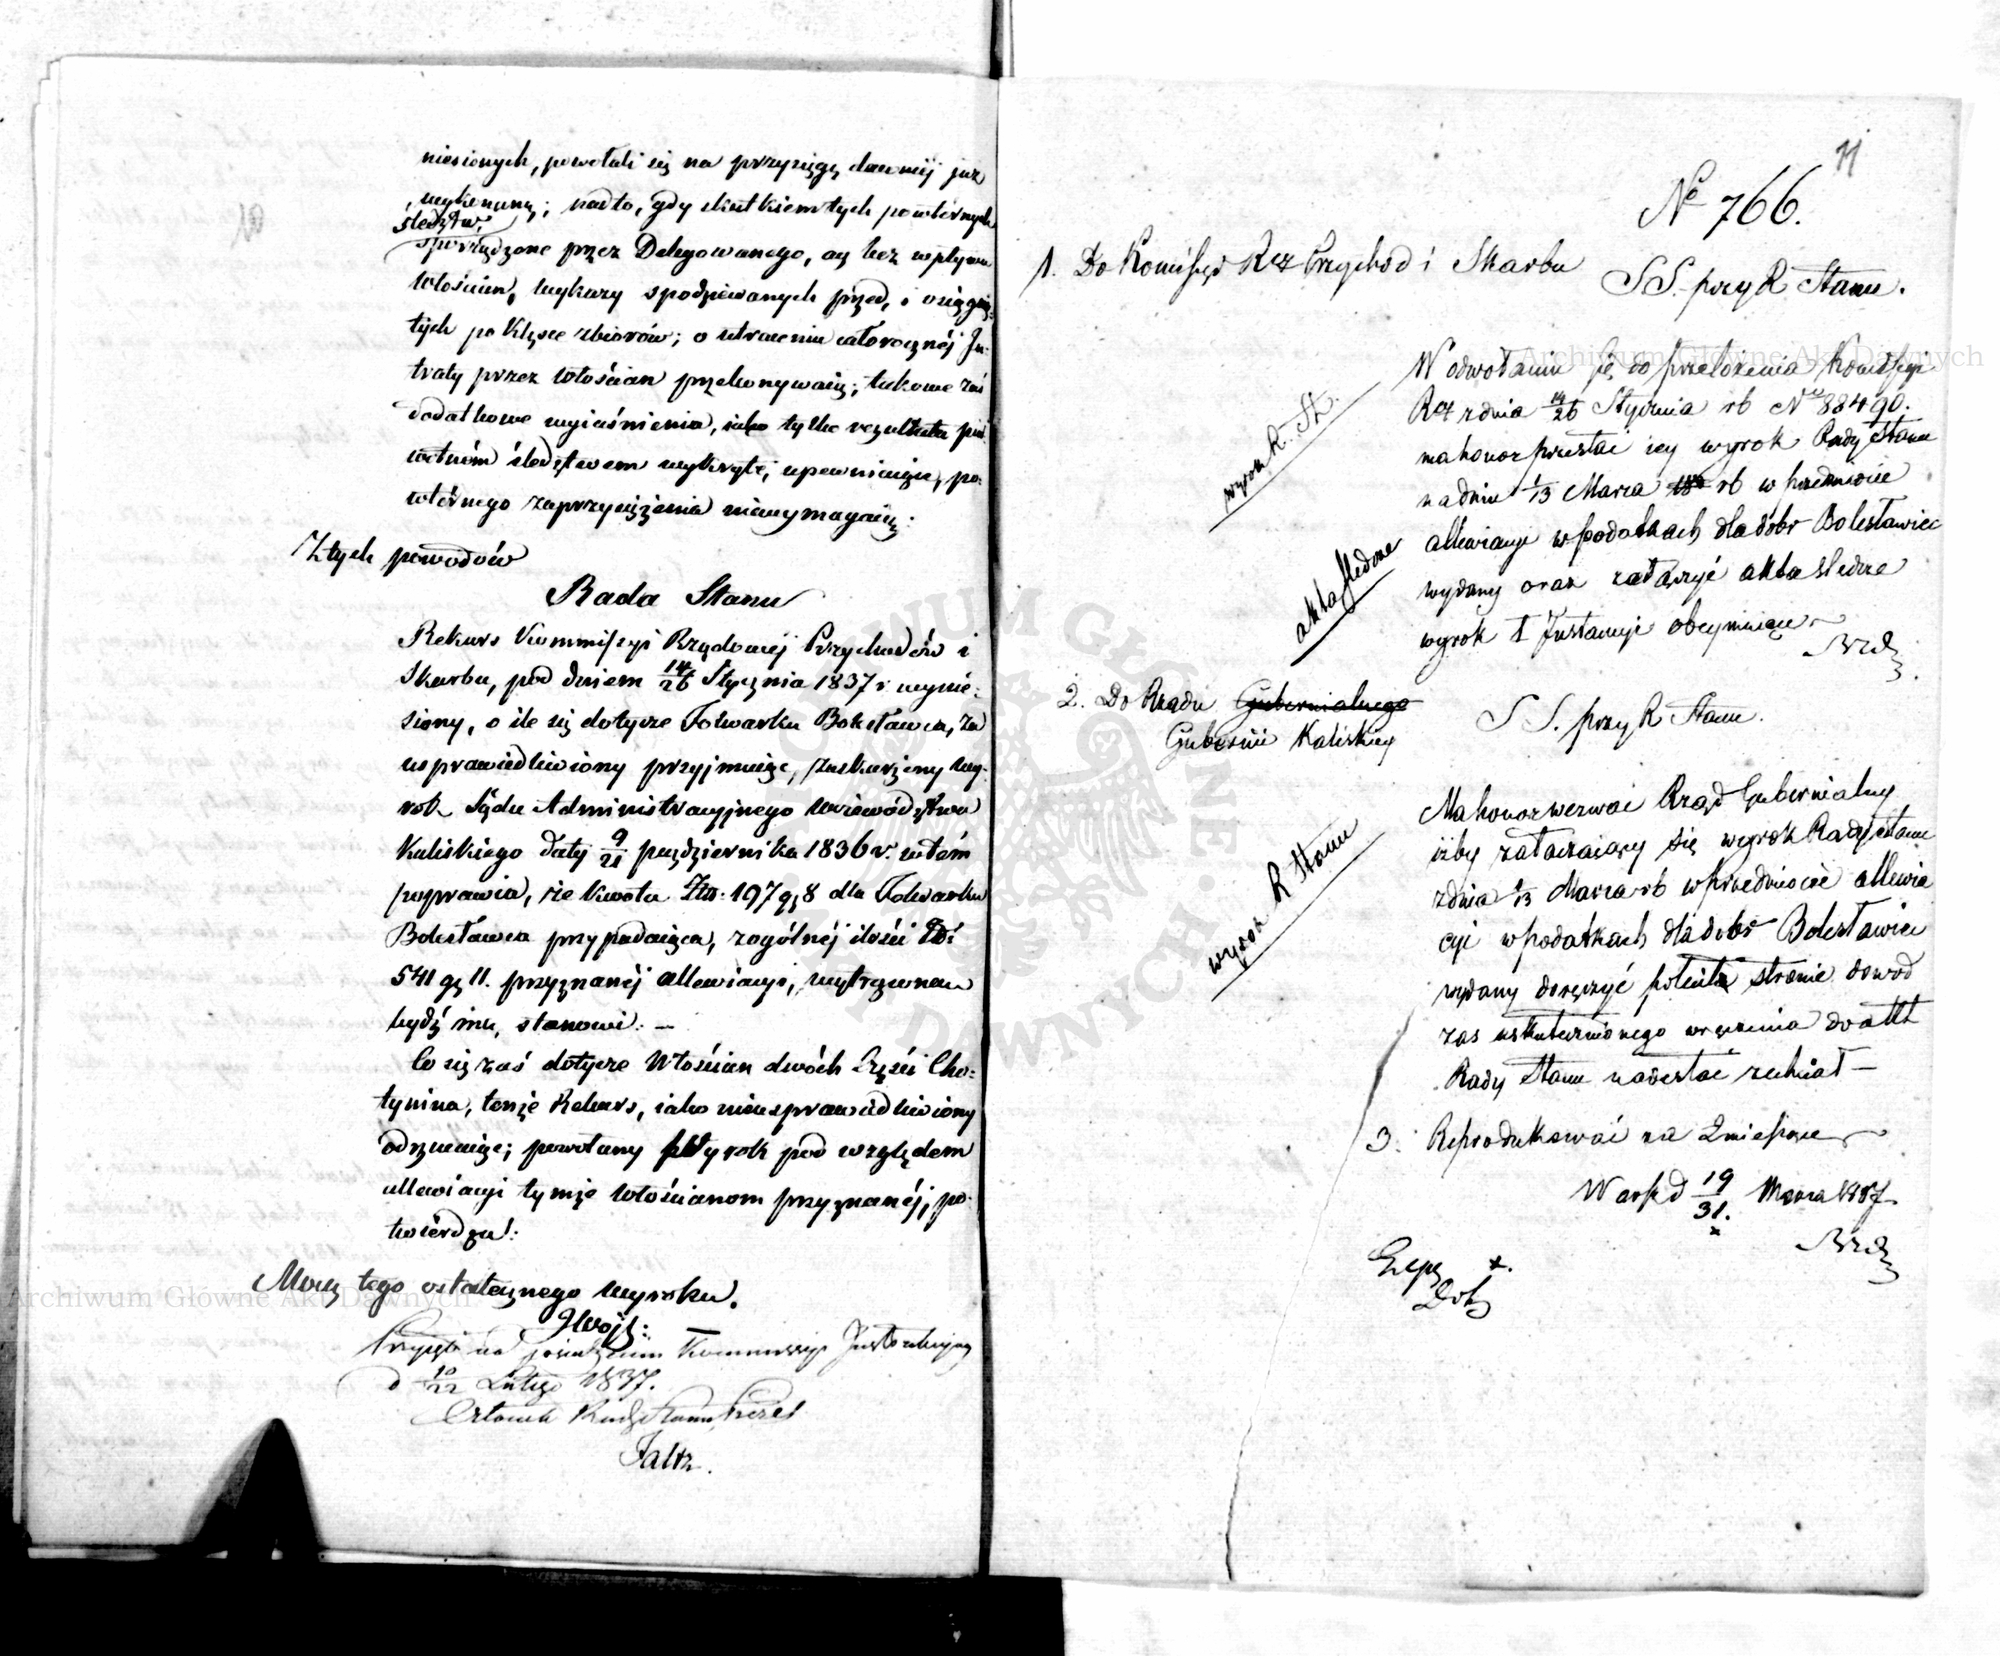 niesionych, powołali się na przysięgę dawniéj już
wykonaną; nadto, gdy skutkiem tych powtórnych
śledztw,
sporządzone przez Delegowanego, acz bez wpływu
Włościan, wykazy spodziewanych przed, i osiągnię-
tych po klęsce zbiorów; o utraceniu całorocznéj In-
traty przez Włościan przekonywaią; takowe zaś
dodatkowe wyiaśnienia, iako tylko rezultata pier
wotném śledztwem wykryte, upewniaiące, po-
wtórnego zaprzysiężenia niewymagaią:
Z tych powodów
Rada Stanu
Rekurs Kommissyi Rządowéj Przychodów i
Skarbu, pod dniem 14/26 Stycznia 1837 r. wynie-
siony, o ile się dotycze Folwarku Bolesławca, za
usprawiedliwiony przyjmuiąc, zaskarżony wy-
rok Sądu Administracyjnego Województwa
Kaliskiego daty 9/21 października 1836 r. w tém
poprawia, że kwota Złp. 197 gr 8 dla Folwarku
Bolesławca przypadaiąca, z ogólnéj ilości Złp:
541 gr 11. przyznanéj allewiacyi, wytrąconą
bydź ma, stanowi. —
Co się zaś dotycze Włościan dwóch Części Cho-
tynina, tenże Rekurs, iako nieusprawiedliwiony
odrzucaiąc; powołany Wyrok pod względem
allewiacyi tymże Włościanom przyznanéj, po-
twierdza:
Mocą tego ostatecznego wyroku.
Przyjęto na posiedzeniu Kommissyi Instrukcyjnej
d 10/22 Lutego 1837.
Członek Rady Stanu, Prezes
Faltz.
10
11
No 766.
1. Do Komissyi Rz Przychod i Skarbu
S S. przy R Stanu.
W odwołaniu się do przełożenia Komissyi
Rz z dnia 14/26 Stycznia rb No 88490.
ma honor przesłać iey wyrok Rady Stanu
na dniu 1/13 Marca rb w przedmiocie
allewiacyi w podatkach dla dóbr Bolesławiec
wydany oraz załączyć akta śledcze
wyrok I Instancyi obeymuiące
wyrok R. St.
akta śledcze
2. Do Rządu Gubernialnego
Gubernii Kaliskiey
S S. przy R Stanu.
Ma honor wezwać Rząd Gubernialny
iżby załączaiący się wyrok Rady Stanu
z dnia 1/13 Marca rb w przedmiocie allewia
cyi w podatkach dla dóbr Bolesławiec
wydany doręczyć stronie dowod
zas uskutecznionego wręczenia do akt
Rady Stanu nadesłać zechciał —
wyrok R Stanu
3. Reprodukować za 2 miesiące
Warsz d 19/31. Marca 1837